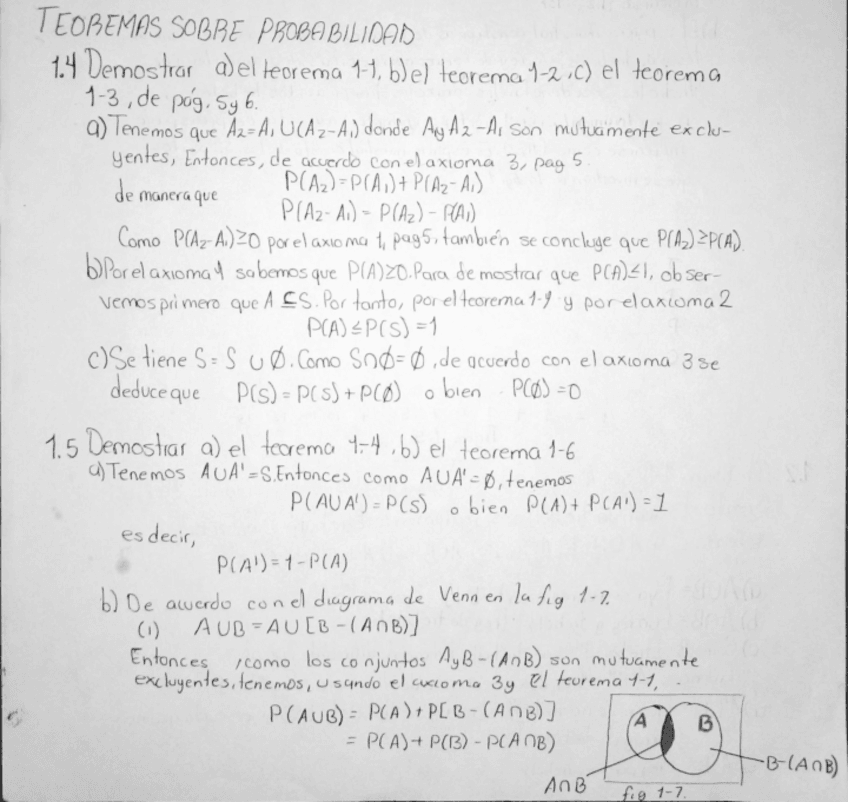 TEOREMAS SOBRE PROBABILIDAD
1.4 Demostrar a) el teorema 1-1, b) el teorema 1-2, c) el teorema
1-3, de pág. 5 y 6.
a) Tenemos que A₂=A₁ U(A₂-A₁) donde A₁y A₂-A₁ son mutuamente exclu-
yentes, Entonces, de acuerdo con el axioma 3, pag 5.
P(A₂)=P(A₁)+P(A₂-A₁)
de manera que
P(A₂-A₁)= P(A₂)-P(A₁)
Como P(A₂-A₁)≥0 por el axioma 1, pag5, también se concluye que P(A₂)≥P(A₁).
b) Por el axioma 1 sabemos que P(A)≥0. Para demostrar que P(A)≤1, obser-
vemos primero que A ⊆S. Por tanto, por el teorema 1-1 y por el axioma 2
P(A)≤P(S)=1
c) Se tiene S= S ∪ Ø. Como S∩Ø=Ø, de acuerdo con el axioma 3 se
deduce que P(S)=P(S)+P(Ø) o bien P(Ø)=0
1.5 Demostrar a) el teorema 1-4, b) el teorema 1-6
a) Tenemos A∪A'=S. Entonces como A∪A'=Ø, tenemos
P(A∪A')=P(S) o bien P(A)+ P(A')=1
es decir,
P(A')=1-P(A)
b) De acuerdo con el diagrama de Venn en la fig 1-7.
(1) A∪B=A∪[B-(A∩B)]
Entonces, como los conjuntos A y B-(A∩B) son mutuamente
excluyentes, tenemos, usando el axioma 3 y el teorema 1-1,
P(A∪B)= P(A)+P[B-(A∩B)]
= P(A)+P(B)-P(A∩B)
A B
B-(A∩B)
A∩B
fig 1-7.